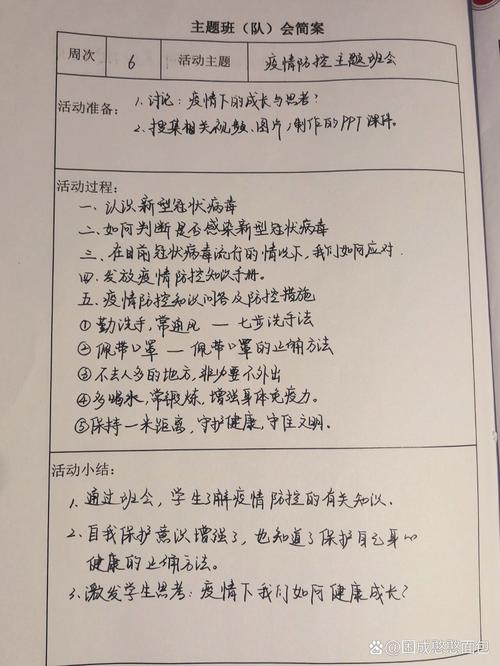 主题班（队）会简案
周次 6 活动主题 疫情防控主题班会
活动准备：1.讨论：疫情下的成长与思考？
2.搜集相关视频、图片，制作的PPT课件。
活动过程：
一、认识新型冠状病毒
二、如何判断是否感染新型冠状病毒
三、在目前冠状病毒流行的情况下，我们如何应对.
四、发放疫情防控知识手册。
五、疫情防控知识问答及防控措施
①勤洗手，常通风 — 七步洗手法
②佩带口罩 — 佩带口罩的正确方法
③不去人多的地方，非必要不外出
④多喝水，常锻炼，增强身体免疫力。
⑤保持一米距离，守护健康，守住文明.
活动小结：
1.通过班会，学生了解疫情防控的有关知识.
2.自我保护意识增强了，也知道了保护自己身心
健康的正确方法。
3.激发学生思考：疫情下我们如何健康成长？
@困成憨憨面包